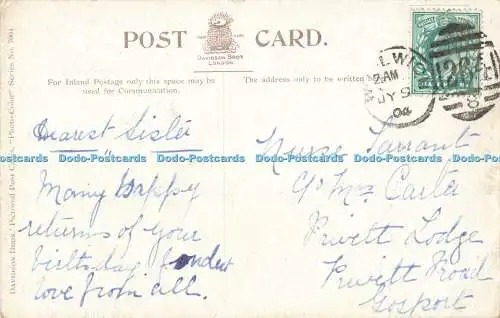 POST CARD.
DAVIDSON BROS
LONDON
For Inland Postage only this space may be
used for Communication.
The address only to be written
Davidson Bros.' Pictorial Post Cards.
Series No. 7004
Dearest Sister
Many happy
returns of your
birthday, fondest
love from all.
JY 9
04
Nurse Tarrant
c/o Mrs Carter
Privett Lodge
Privett Road
Gosport
Dodo-Postcards Dodo-Postcards Dodo-Postcards Dodo-Postcards Dodo-Postcards